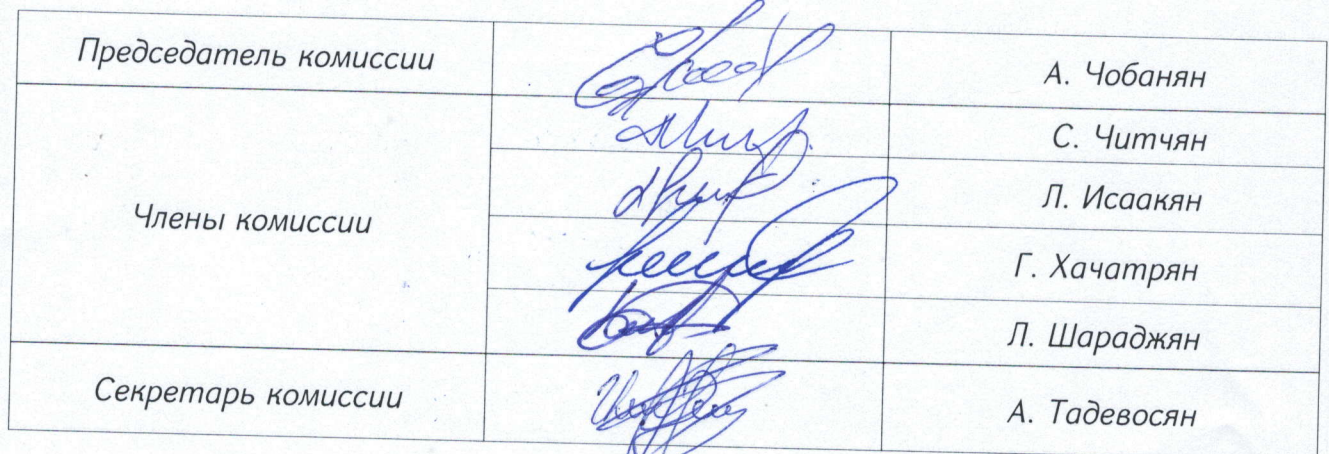 Председатель комиссии
А. Чобанян
Члены комиссии
С. Читчян
Л. Исаакян
Г. Хачатрян
Л. Шараджян
Секретарь комиссии
А. Тадевосян